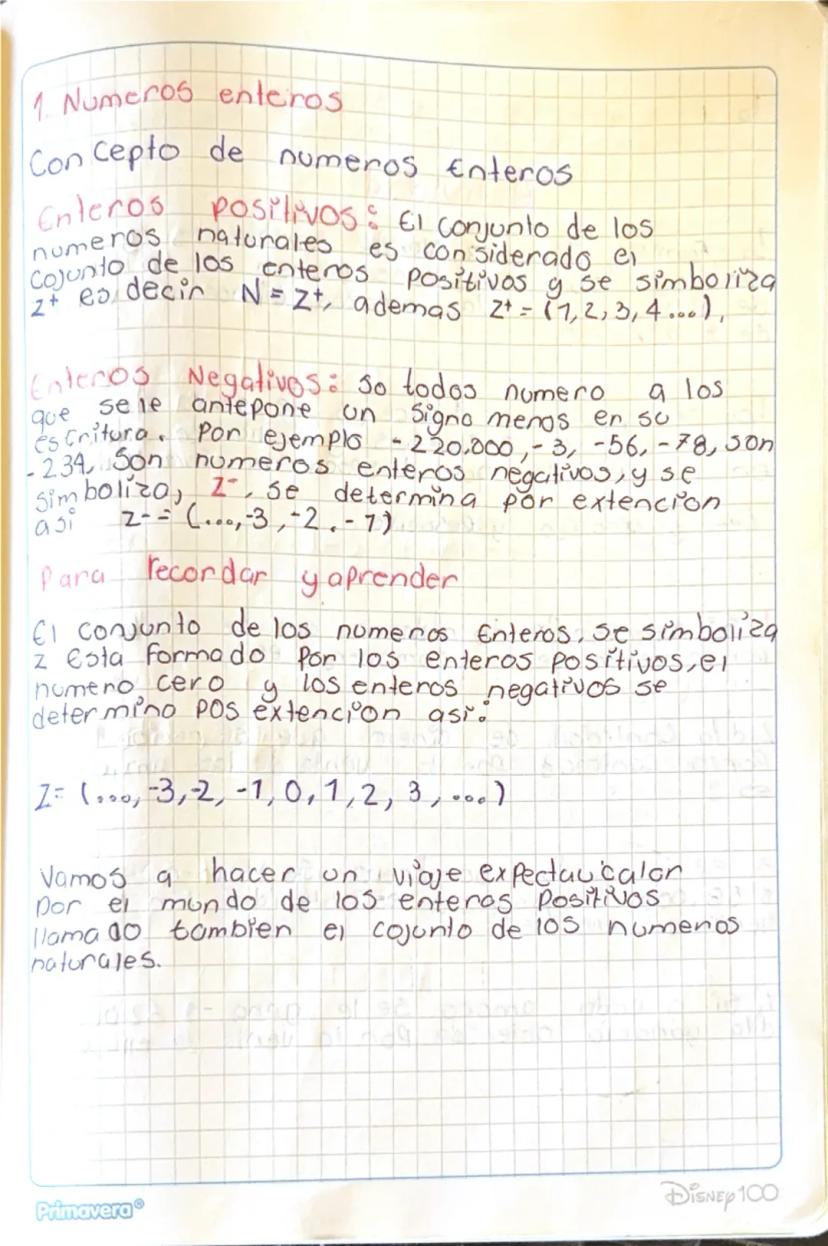 1. Numeros enteros
Concepto de numeros Enteros
Enteros positivos: El conjunto de los
numeros naturales es considerado el
cojunto de los enteros positivos y se simboliza
z+ es decir N = Z+, ademas Z+ = (1, 2, 3, 4...),
Enteros Negativos: So todos numero a los
que se le antepone un signo menos en su
escritura. Por ejemplo -220.000, -3, -56, -78, son
-234, Son numeros enteros negativos, y se
simboliza, Z-, se determina por extencion
asi Z- = (..., -3, -2, -1)
Para recordar y aprender
El conjunto de los numeros Enteros, se simboliza
z Esta formado Por los enteros positivos, el
numero cero y los enteros negativos se
determino pos extencion asi:
Z= (..., -3, -2, -1, 0, 1, 2, 3, ...)
Vamos a hacer un viaje expectaucalor
por el mundo de los enteros Positivos
llamado tambien el cojunto de los numeros
naturales.
Primavera®
Disney 100